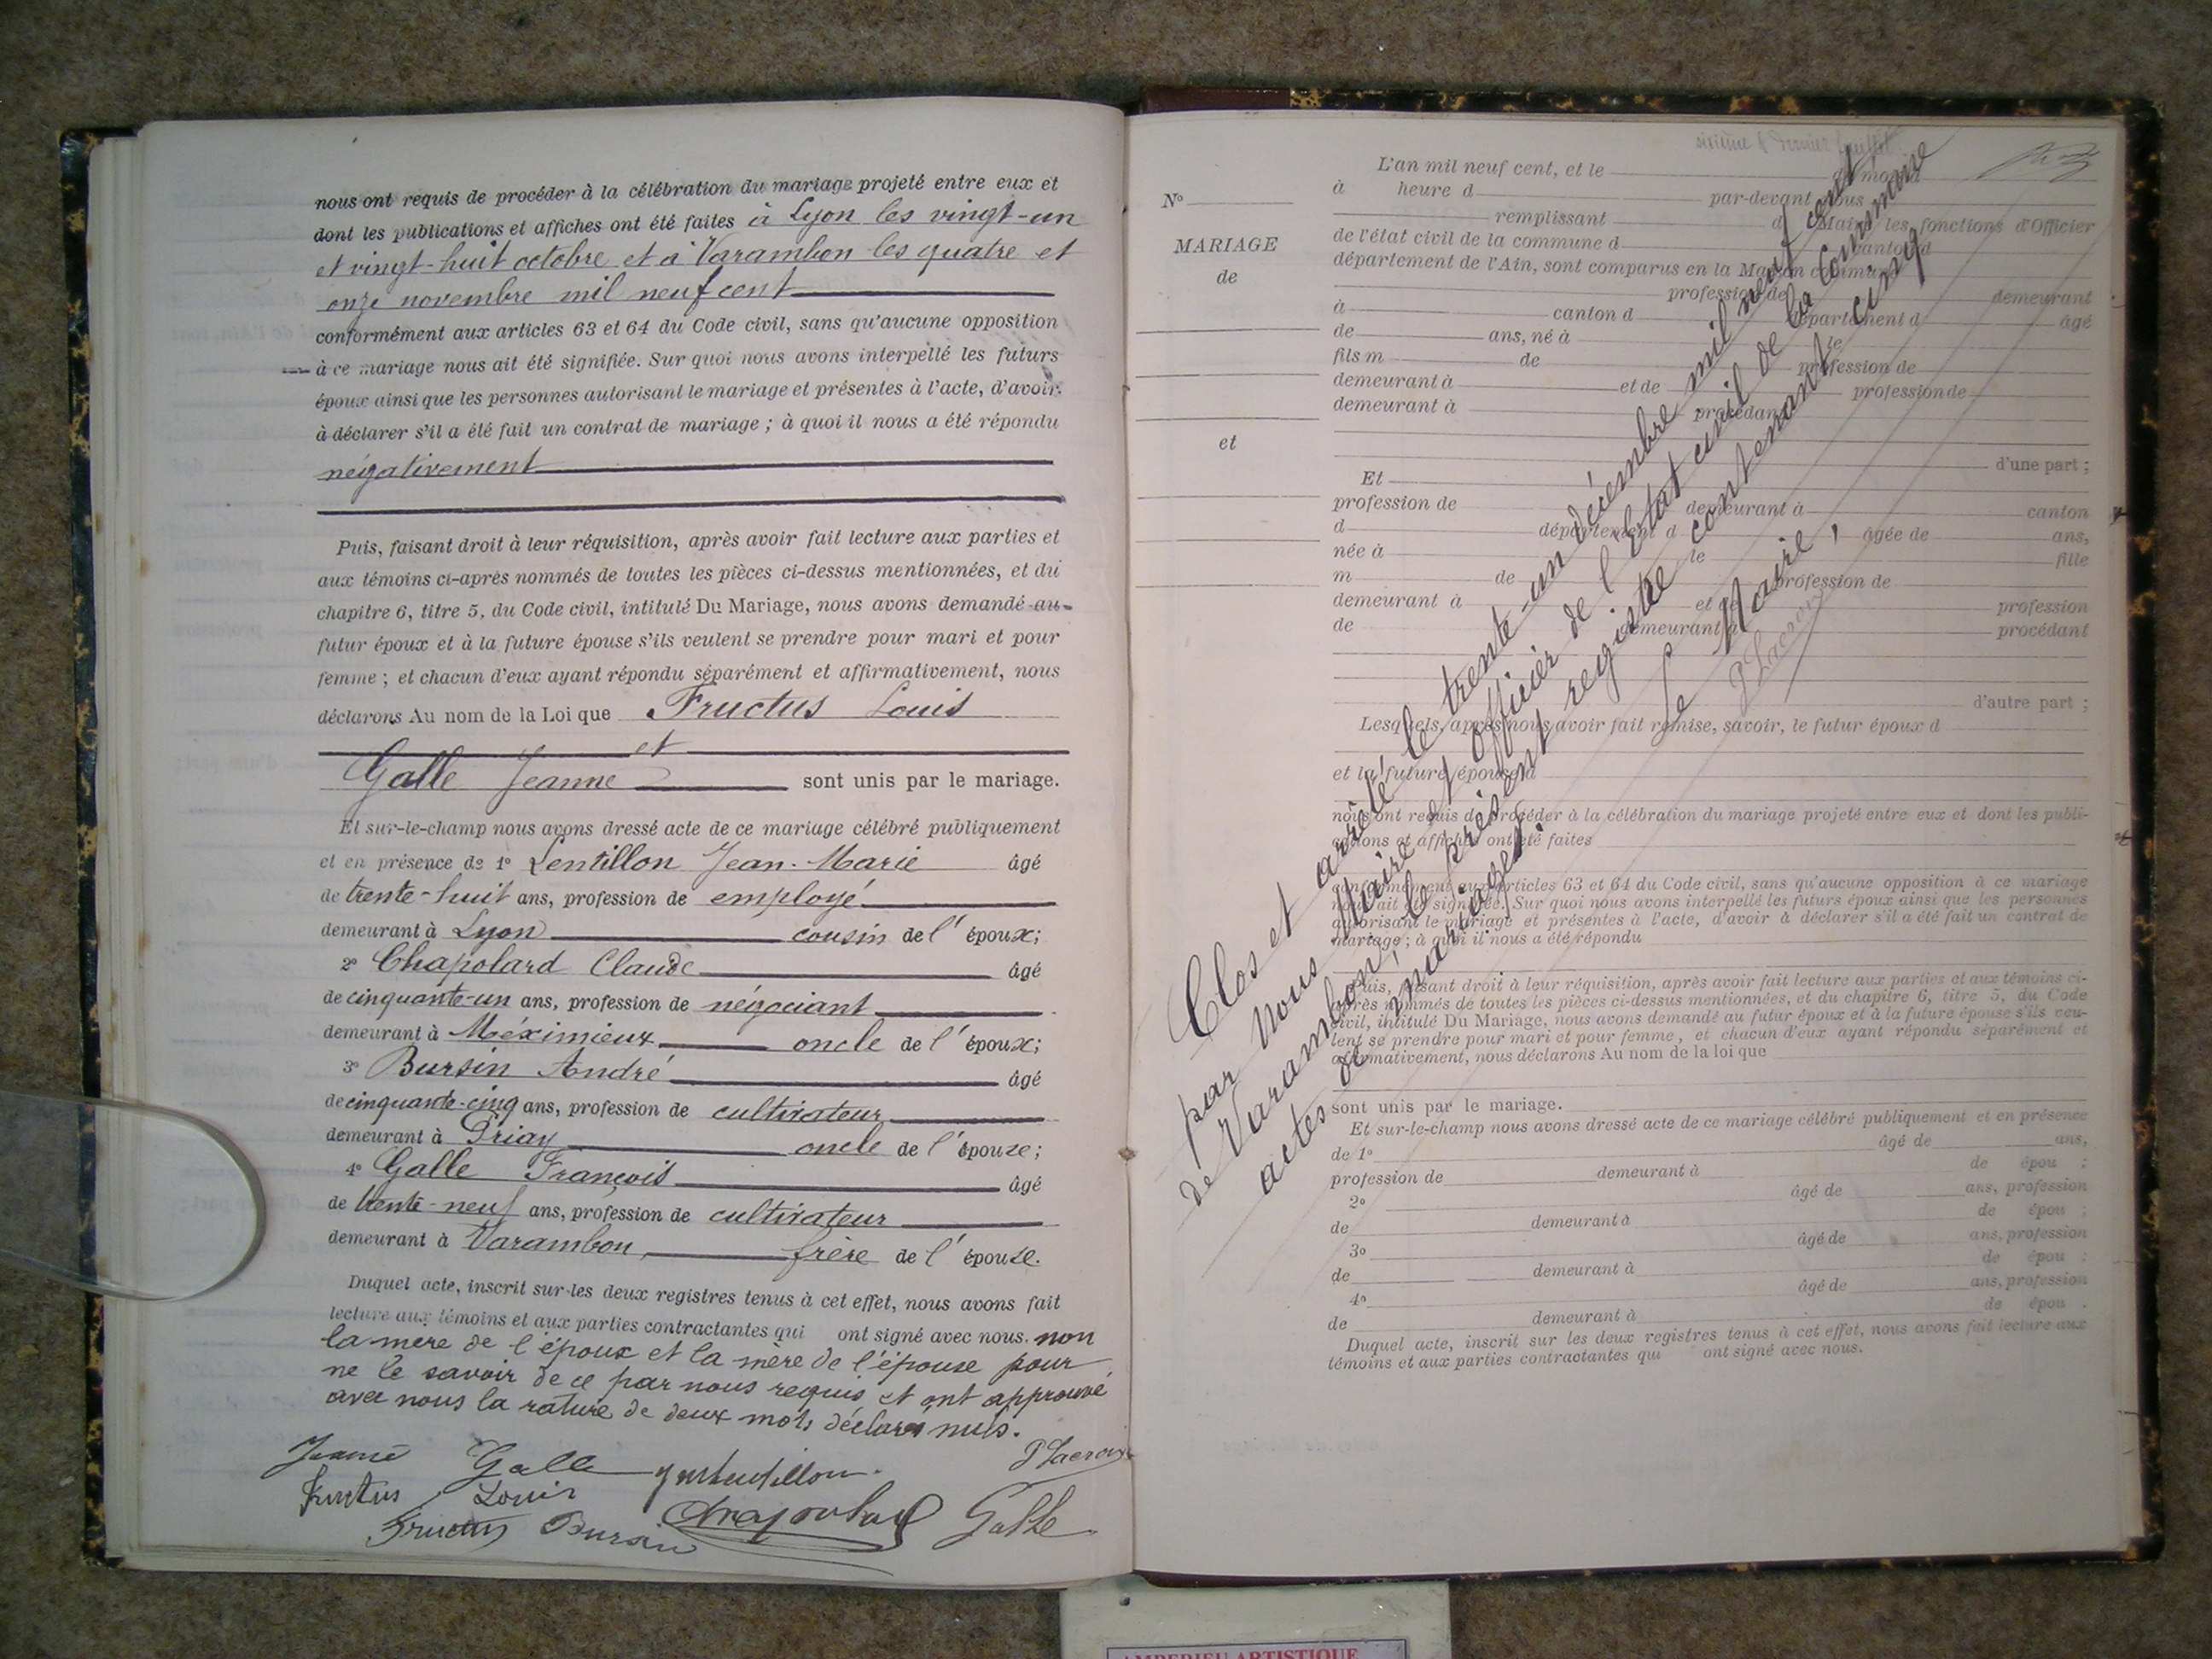 nous ont requis de procéder à la célébration du mariage projeté entre eux et
dont les publications et affiches ont été faites à Lyon les vingt-un
et vingt-huit octobre et à Varambon les quatre et
onze novembre mil neuf cent
conformément aux articles 63 et 64 du Code civil, sans qu'aucune opposition
à ce mariage nous ait été signifiée. Sur quoi nous avons interpellé les futurs
époux ainsi que les personnes autorisant le mariage et présentes à l'acte, d'avoir
à déclarer s'il a été fait un contrat de mariage ; à quoi il nous a été répondu
négativement
Puis, faisant droit à leur réquisition, après avoir fait lecture aux parties et
aux témoins ci-après nommés de toutes les pièces ci-dessus mentionnées, et du
chapitre 6, titre 5, du Code civil, intitulé Du Mariage, nous avons demandé au
futur époux et à la future épouse s'ils veulent se prendre pour mari et pour
femme ; et chacun d'eux ayant répondu séparément et affirmativement, nous
déclarons Au nom de la Loi que Fructus Louis
et
Galle Jeanne sont unis par le mariage.
Et sur-le-champ nous avons dressé acte de ce mariage célébré publiquement
et en présence de 1° Lentillon Jean-Marie âgé
de trente-huit ans, profession de employé
demeurant à Lyon cousin de l'époux;
2° Chapolard Claude âgé
de cinquante-un ans, profession de négociant
demeurant à Méximieux oncle de l'époux;
3° Bursin André âgé
de cinquante-cinq ans, profession de cultivateur
demeurant à Priay oncle de l'épouse;
4° Galle François âgé
de trente-neuf ans, profession de cultivateur
demeurant à Varambon, frère de l'épouse.
Duquel acte, inscrit sur les deux registres tenus à cet effet, nous avons fait
lecture aux témoins et aux parties contractantes qui ont signé avec nous. non
la mère de l'époux et la mère de l'épouse pour
ne le savoir de ce par nous requis et ont approuvé
avec nous la rature de deux mots déclarés nuls.
Jeanne Galle P Lacroix
Fructus Louis
Fructus Bursin Chapolard Galle
sixième & dernier feuillet
N°
MARIAGE
de
et
L'an mil neuf cent, et le du mois d
à heure d par-devant nous
remplissant d Maire les fonctions d'Officier
de l'état civil de la commune d canton d
département de l'Ain, sont comparus en la Maison commune
profession de demeurant
à canton d département d âgé
de ans, né à le
fils m de profession de
demeurant à et de profession de
demeurant à procédant
d'une part ;
Et
profession de demeurant à canton
d département d âgée de ans,
née à le fille
m de profession de
demeurant à et de profession
de demeurant à procédant
d'autre part ;
Lesquels, après nous avoir fait remise, savoir, le futur époux d
et la future épouse d
nous ont requis de procéder à la célébration du mariage projeté entre eux et dont les publi-
cations et affiches ont été faites
conformément aux articles 63 et 64 du Code civil, sans qu'aucune opposition à ce mariage
nous ait été signifiée. Sur quoi nous avons interpellé les futurs époux ainsi que les personnes
autorisant le mariage et présentes à l'acte, d'avoir à déclarer s'il a été fait un contrat de
mariage ; à quoi il nous a été répondu
Puis, faisant droit à leur réquisition, après avoir fait lecture aux parties et aux témoins ci-
après nommés de toutes les pièces ci-dessus mentionnées, et du chapitre 6, titre 5, du Code
civil, intitulé Du Mariage, nous avons demandé au futur époux et à la future épouse s'ils veu-
lent se prendre pour mari et pour femme, et chacun d'eux ayant répondu séparément et
affirmativement, nous déclarons Au nom de la loi que
sont unis par le mariage.
Et sur-le-champ nous avons dressé acte de ce mariage célébré publiquement et en présence
de 1° âgé de ans,
profession de demeurant à de épou ;
2° âgé de ans, profession
de demeurant à de épou ;
3° âgé de ans, profession
de demeurant à de épou ;
4° âgé de ans, profession
de demeurant à de épou .
Duquel acte, inscrit sur les deux registres tenus à cet effet, nous avons fait lecture aux
témoins et aux parties contractantes qui ont signé avec nous.
Clos et arrêté le trente-un décembre mil neuf cent
par Nous Maire et officier de l'état civil de la Commune
de Varambon, le présent registre contenant cinq
actes de mariages.
Le Maire,
P Lacroix
AMBERIEU ARTISTIQUE